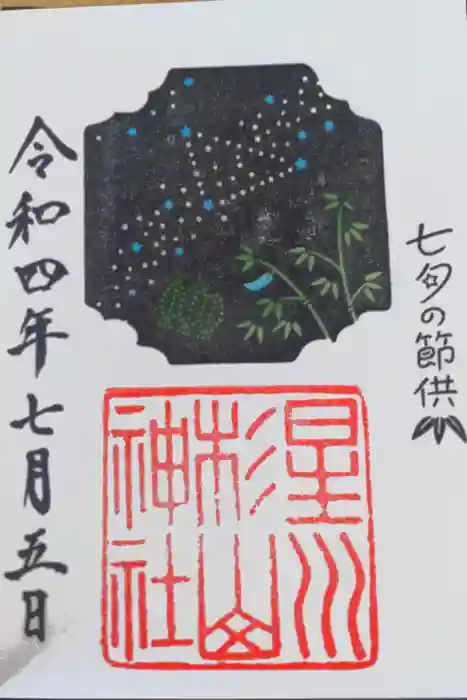 七夕の節供
星川
杉山
神社
令和四年七月五日